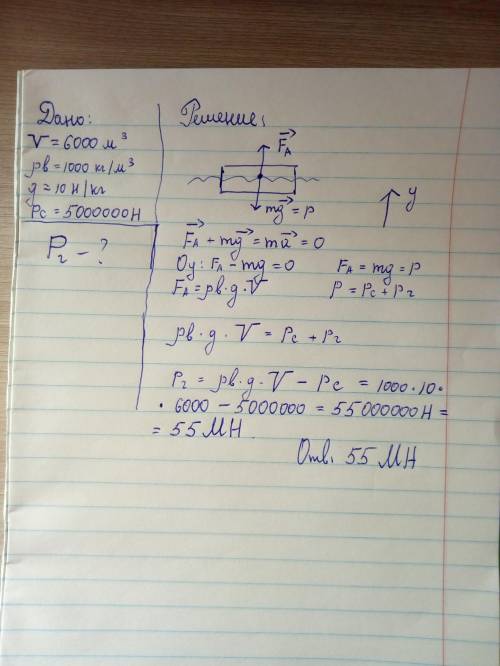 Дано:
V = 6000 м³
ρв = 1000 кг/м³
g = 10 Н/кг
Pс = 5000000 Н
Pг - ?
Решение:
F⃗A
mg⃗ = P
y
F⃗A + mg⃗ = ma⃗ = 0
Oy: FA - mg = 0
FA = mg = P
FA = ρв · g · V
P = Pс + Pг
ρв · g · V = Pс + Pг
Pг = ρв · g · V - Pс = 1000 · 10 ·
· 6000 - 5000000 = 55000000 Н =
= 55 МН.
Отв. 55 МН